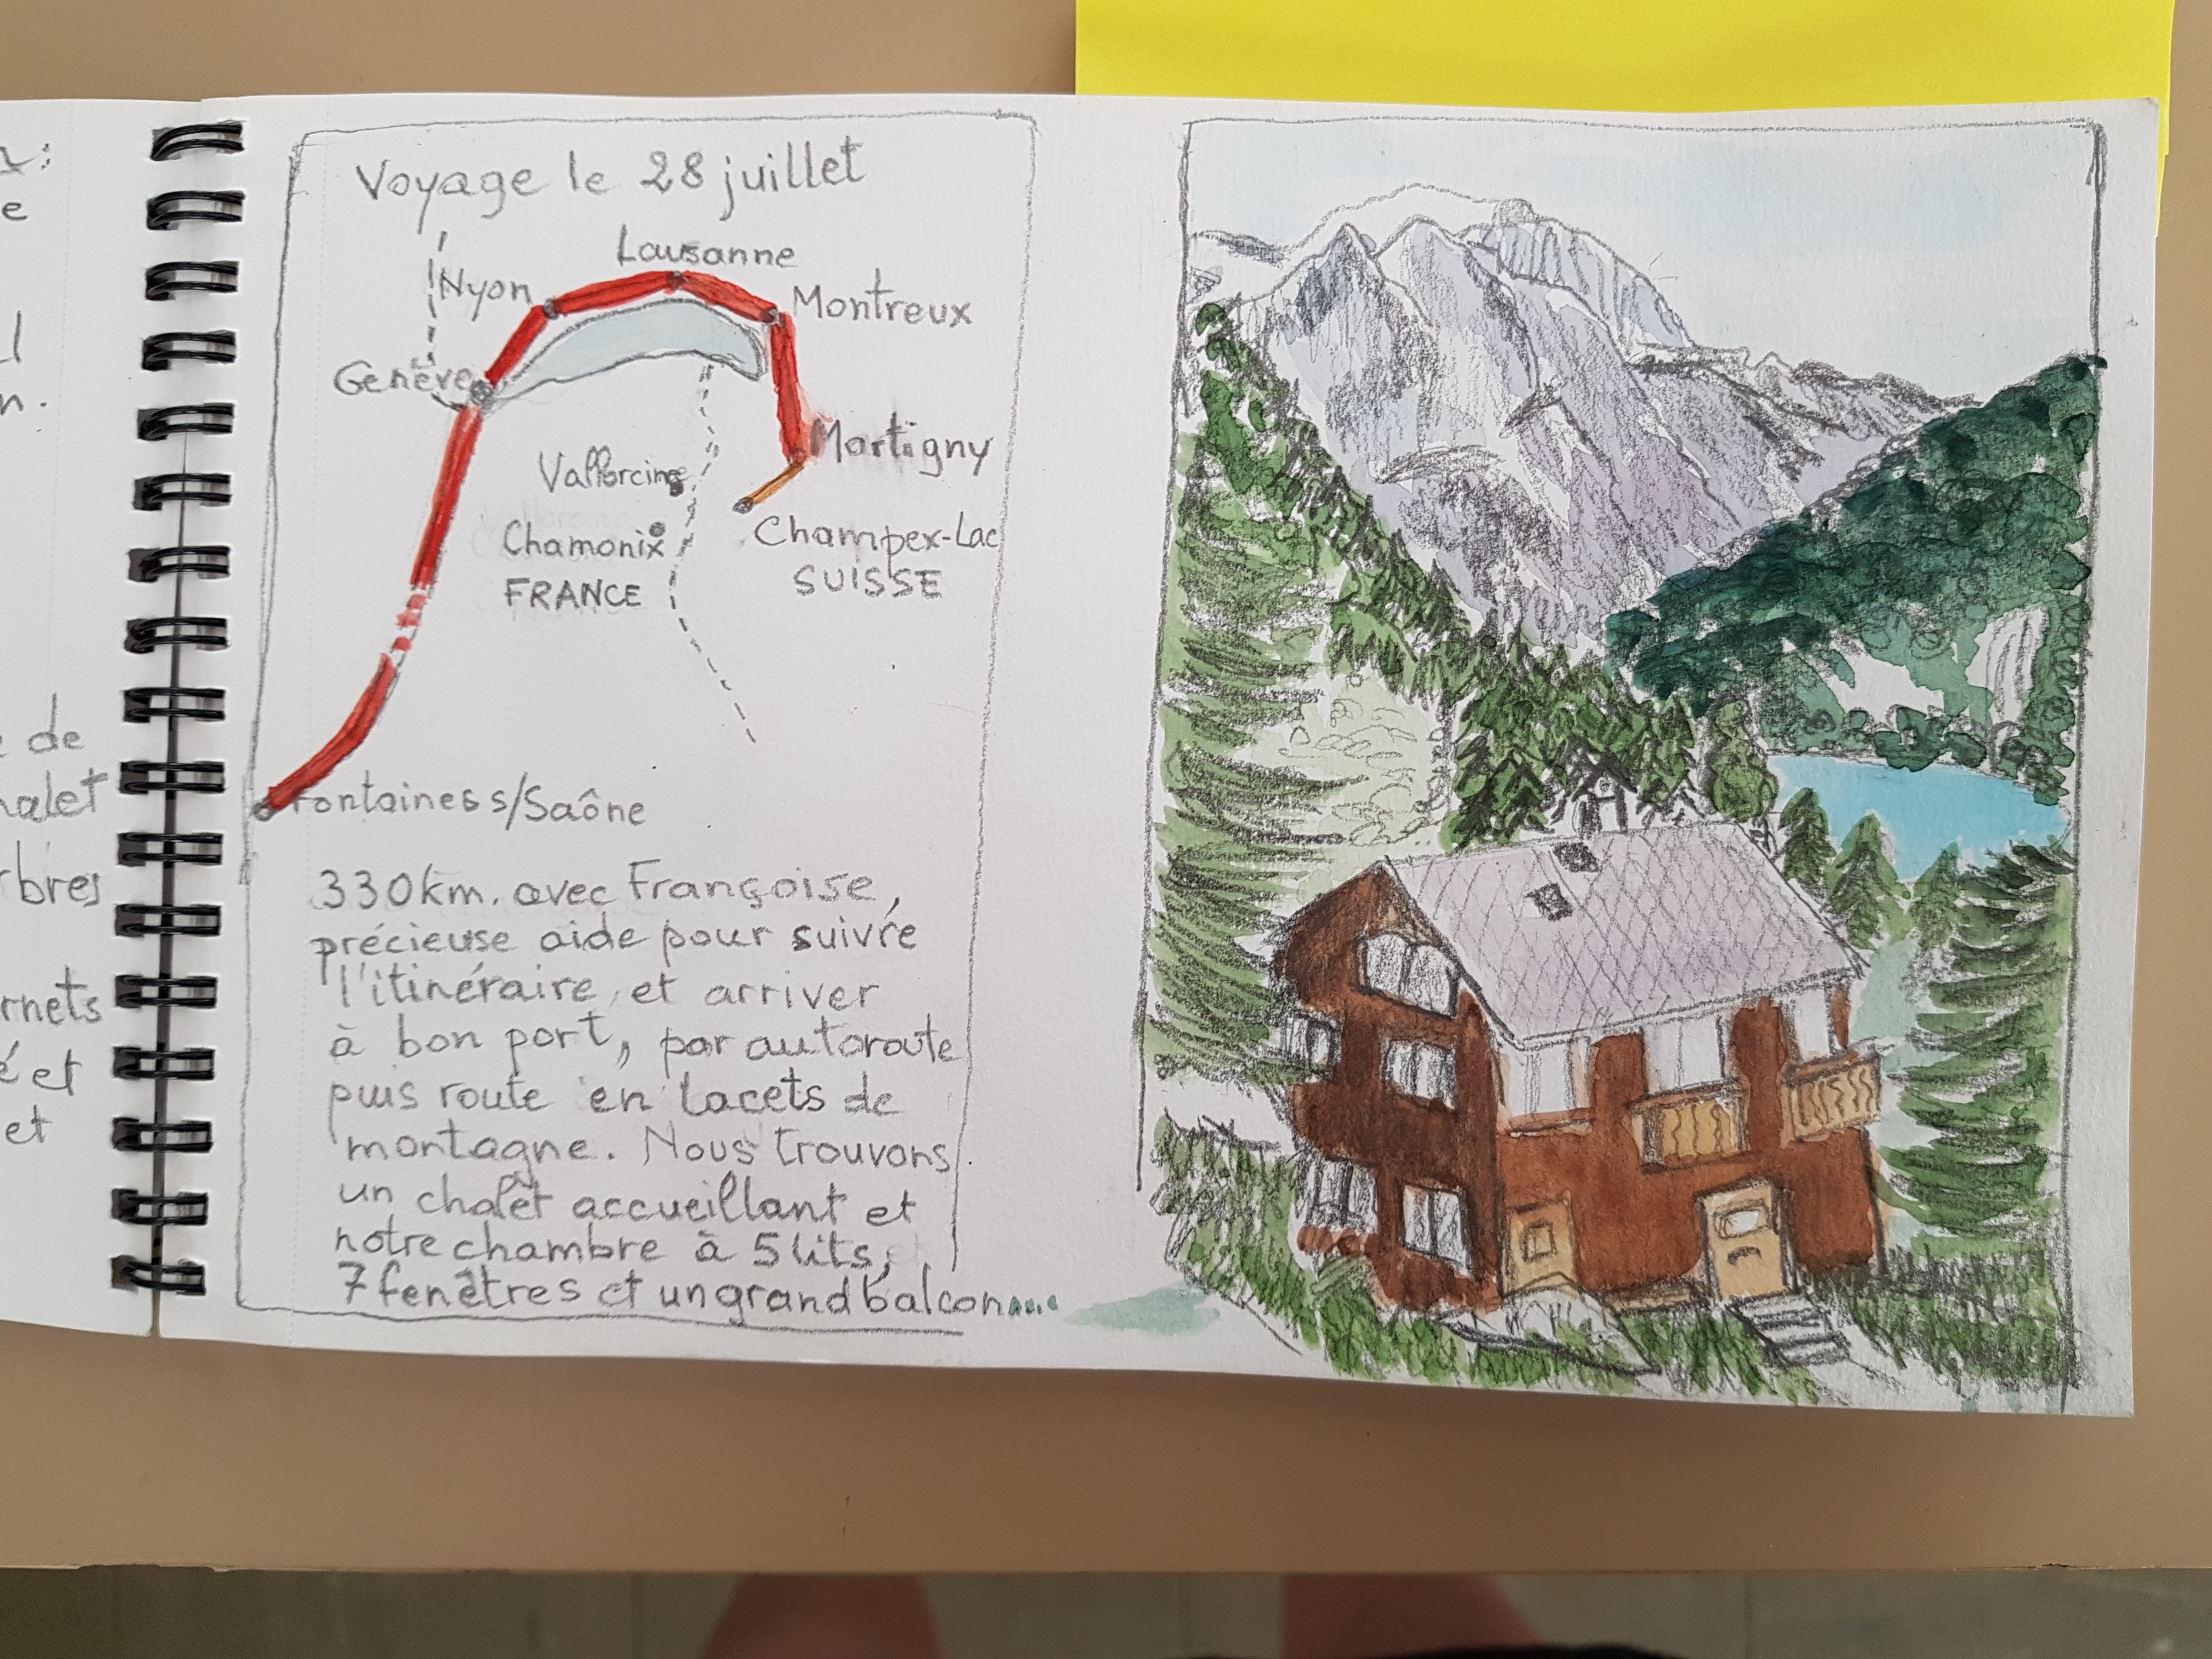 e
de
et
et
Voyage le 28 juillet
Lausanne
Nyon
Montreux
Genève
Martigny
Vallorcine
Chamonix
Champex-Lac
FRANCE
SUISSE
Fontaines s/Saône
330km. avec Françoise,
précieuse aide pour suivre
l'itinéraire, et arriver
à bon port, par autoroute
puis route en lacets de
montagne. Nous trouvons
un chalet accueillant et
notre chambre à 5 lits,
7 fenêtres et un grand balcon....